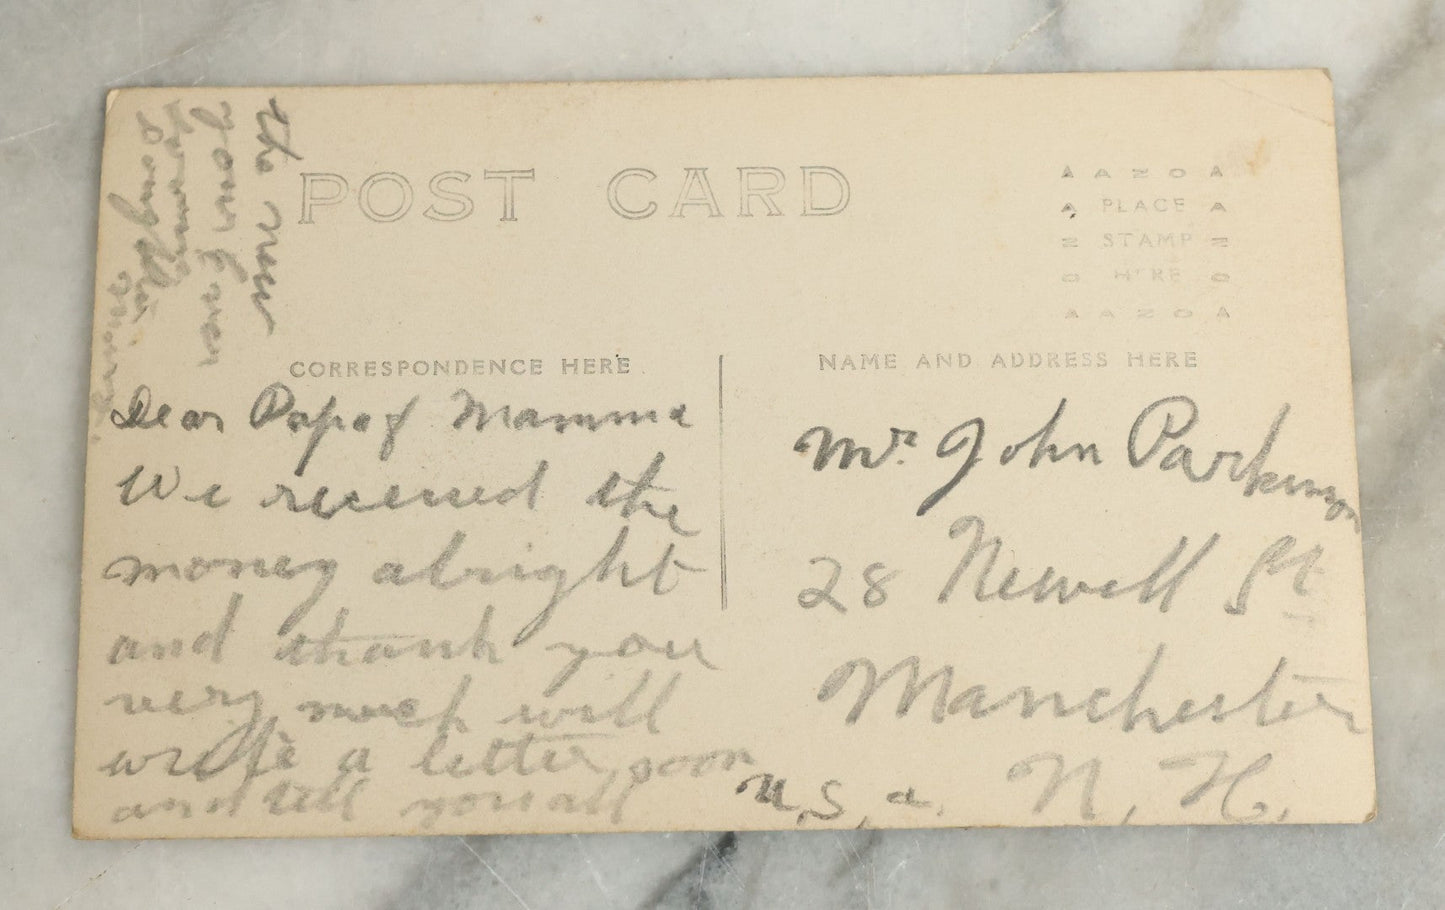 POST CARD
AZOA
PLACE
STAMP
HERE
AZOA
CORRESPONDENCE HERE
NAME AND ADDRESS HERE
Dear Papa & Mamma
We received the
money alright
and thank you
very much will
write a letter soon
and tell you all
the news
Your ever
Daughter
Mr. John Parkinson
28 Newell St
Manchester
N. H.
U.S.A.